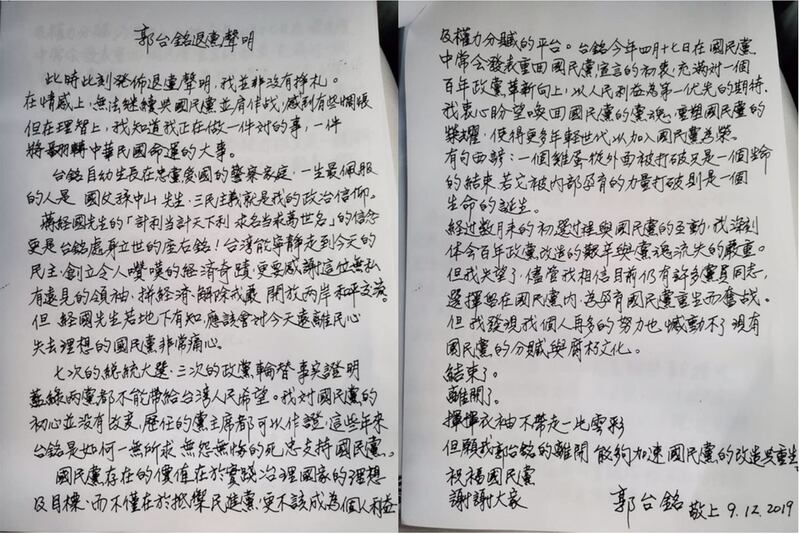 郭台銘退黨聲明
此時此刻發佈退黨聲明，我並非沒有掙扎。
在情感上，無法継續與國民黨並肩作战，感到有些惆悵
但在理智上，我知道我正在做一件对的事，一件
將翻轉中華民國命運的大事。
台銘自幼生長在忠黨愛國的警察家庭，一生最佩服
的人是 國父孫中山先生，三民主義就是我的政治信仰。
蔣經國先生的「計利当計天下利 求名当求萬世名」的信念
更是台銘處身立世的座右銘！台灣能寧靜走到今天的
民主，創立令人嚮嘆的經濟奇蹟，更要感謝這位無私
有遠見的領袖，拼經濟、解除戒嚴、開放兩岸和平交流。
但 經國先生若地下有知，應該會对今天遠離民心
失去理想的國民黨非常痛心。
七次的總統大選，三次的政黨輪替，事实證明
藍綠两黨都不能帶給台湾人民希望。我对國民黨的
初心並没有改变，歷任的黨主席都可以作證，這些年来
台銘是如何一無所求、無怨無悔的死忠支持國民黨。
國民黨存在的價值在於實踐治理國家的理想
及目標，而不僅在於抵禦民進黨，更不該成為個人利益
及權力分贓的平台。台銘今年四月十七日在國民黨
中常会發表重回國民黨宣言的初衷，充滿对一個
百年政黨革新向上，以人民利益為第一优先的期待。
我衷心盼望喚回國民黨的黨魂，重塑國民黨的
榮耀，使得更多年轻世代以加入國民黨為榮。
有句西諺：一個雞蛋從外面被打破只是一個生命
的結束，若它被内部孕育的力量打破則是一個
生命的誕生。
經过數月来的初選过程與國民黨的互動，我深刻
体会百年政黨改造的艱辛與黨魂流失的嚴重。
但我失望了，儘管我相信目前仍有許多黨員同志，
選擇留在國民黨内，為孕育國民黨重生而奮战。
但我發現我個人再多的努力也憾動不了現有
國民黨的分贓與腐朽文化。
結束了。
離開了。
揮揮衣袖不帶走一地雲彩
但願我郭台銘的離開 能夠加速國民黨的改造與重生。
祝福國民黨
謝謝大家
郭台銘 敬上 9.12.2019